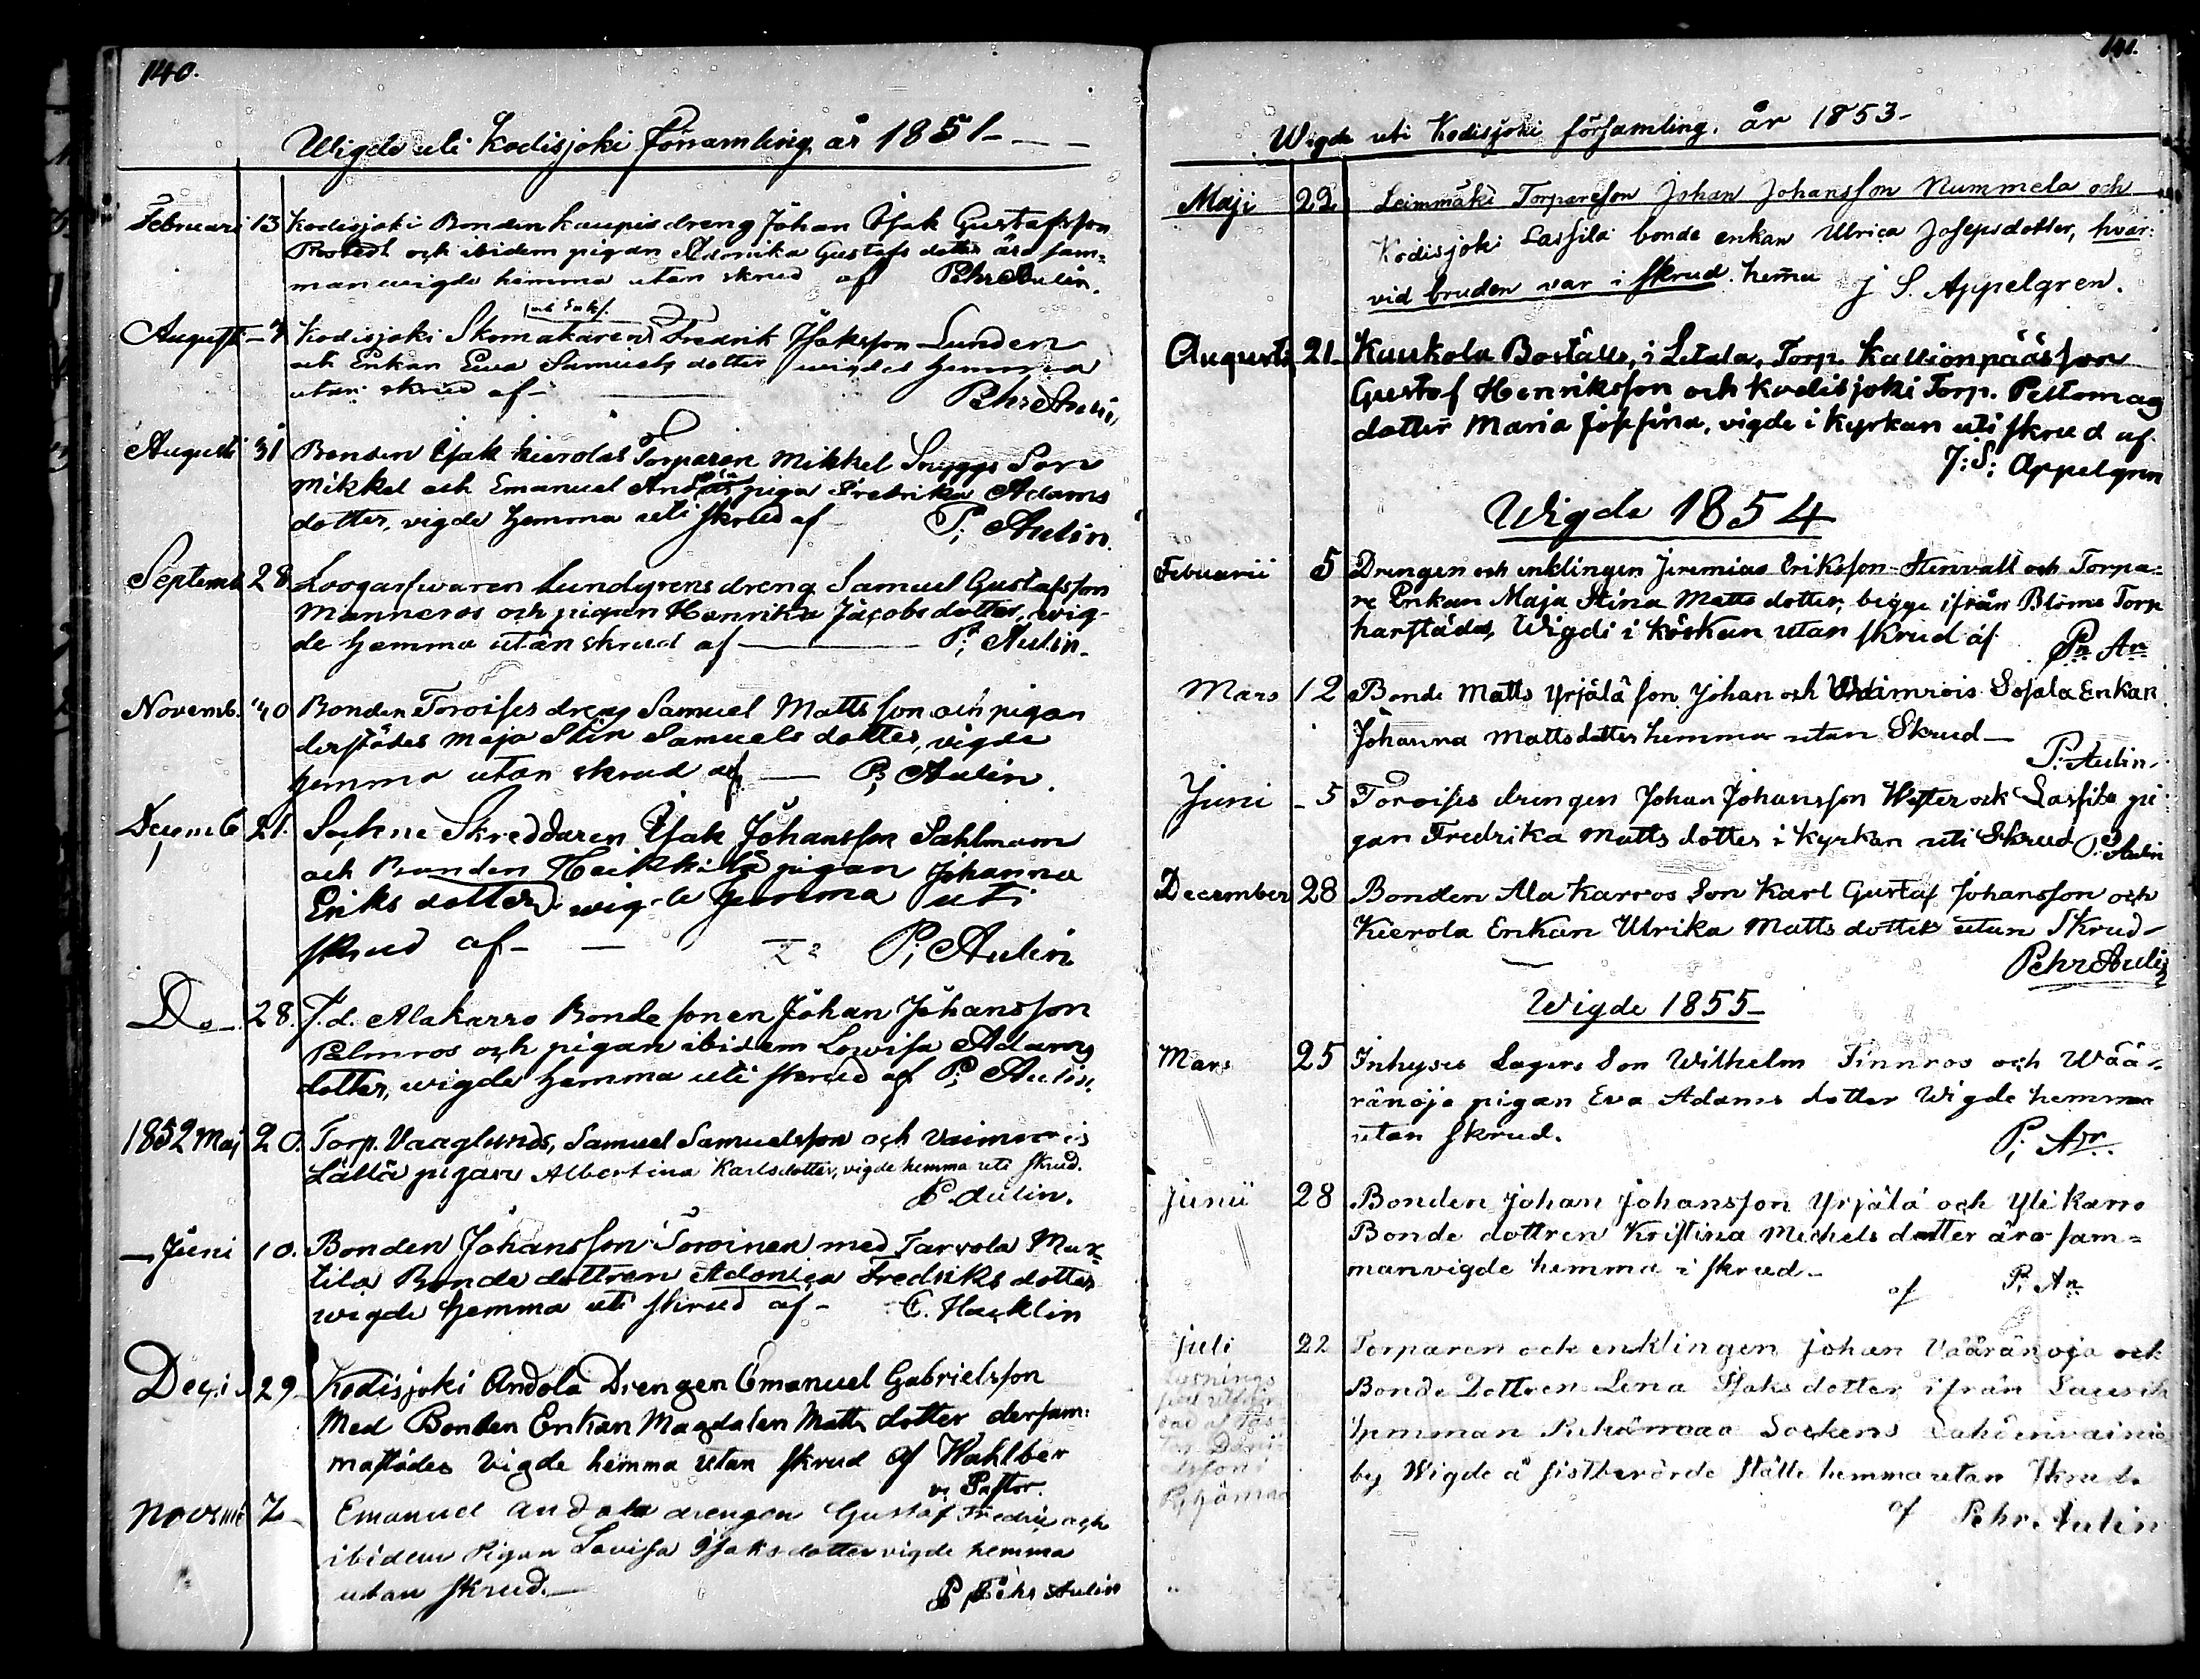 140.
Wigde uti Kodisjoki församling år 1851
Februari 13 Kodisjoki Bonden Kaupis dreng Johan Isak Gustafsson
och ibidem pigan Adonika Gustafs dotter äro sam=
manwigde hemma utan skrud af Pehr Aulin.
Augusti Kodisjoki Skomakaren Fredrik Isaksson Lunden
och Enkan Ewa Samuels dotter wigdes hemma
utan skrud af Pehr Aulin
Augusti 31 Bonden Isak Kierolas Torparen Mikkel Snyggs Son
Mikkel och Emanuel piga Fredrika Adams
dotter, vigde hemma uti skrud af P; Aulin.
Septemb 28 Lundgrens dreng Samuel Gustafsson
Manneros och pigan Henrika Jacobs dotter, wig-
de hemma utan skrud af P; Aulin.
Novemb. Bonden Toroises dreng Samuel Mattsson och pigan
derstädes Maja Stin Samuels dotter, vigde
hemma utan skrud af P; Aulin.
Decemb 21. Sockne Skreddaren Isak Johansson Sahlman
och Bonden Heikkilä pigan Johanna
Eriks dotter wigde hemma uti
skrud af P; Aulin
Do 28. J.d. Alakarro Bonde sonen Johan Johansson
Palmros och pigan ibidem Lowisa Adams
dotter, wigde hemma uti skrud af P; Aulin.
1852 Maj 20. Torp. Vaaglunds, Samuel Samuelsson och Vaimaris
Lällä pigan Albertina Karlsdotter, vigde hemma uti skrud.
P. Aulin.
Juni 10. Bonden Johansson Toroinen med Tarvola Mar-
tila Bonde dottren Adonica Fredriks dotter
wigde hemma uti skrud af C. Hacklin
29 Kodisjoki Andola Drengen Emanuel Gabrielsson
Med Bonden Enkan Magdalen Matts dotter dersam:
mastädes Vigde hemma utan skrud af Wahlber
v. Pastor.
7 Emanuel Andola drengen Gustaf Fredric och
ibidem Pigan Lovisa Isaks dotter vigde hemma
utan skrud. Pehr Aulin
141.
Wigde uti Kodisjoki församling. år 1853
Maji 22 Leimmäki Torpareson Johan Johansson Nummela och
Kodisjoki Lassila bonde enkan Ulrica Josepsdotter, hvar:
vid bruden var i skrud. hema J S. Appelgren.
Augusti 21 Kuukola Boställe, i Letala, Torp. Kallionpääs son
Gustaf Henriksson och Kodisjoki Torp. Peltomag
dotter Maria Josefina, vigde i Kyrkan uti skrud af
J: S: Appelgren
Wigde 1854
Febuarii 5 Drengen och enklingen Jeremias Eriksson Stenvall och Torpa=
re Enkan Maja Stina Matts dotter, begge ifrån Bloms Torp
härstädes, Wigdi i körkan utan skrud af Pr An
Mars 12 Bonde Matts Yrjälä son Johan och Enkan
Johanna Mattsdotter hemma utan Skrud
P. Aulin
Juni 5 Toroises drengen Johan Johansson Wester och Lassila pi
gan Fredrika Matts dotter i kyrkan uti Skrud P. Aulin
December 28 Bonden Ala Karros Son Karl Gustaf Johansson och
Kierola Enkan Ulrika Matts dotter utan Skrud
Pehr Aulin
Wigde 1855
Mars 25 Inhyses Lagers Son Wilhelm Finnros och Wää-
ränoja pigan Eva Adams dotter Wigde hemma
utan skrud. P; An.
Junii 28 Bonden Johan Johansson Yrjälä och Yli karro
Bonde dottren Kristina Michels dotter äro sam=
manvigde hemma i skrud
af P. An
Juli 22 Torparen och enklingen Johan Vääränoja och
Bonde Dottren Lena Isaks dotter ifrån
hemman Sockens
by Wigde å sistberörde ställe hemma utan Skrud
af Pehr Aulin
Lysnings